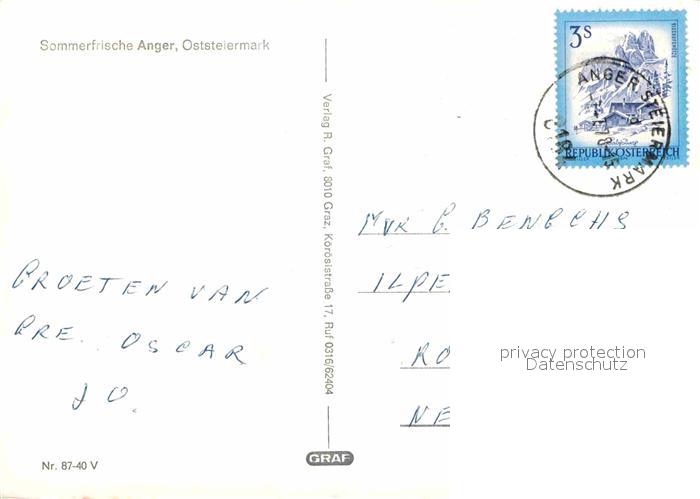 Sommerfrische Anger, Oststeiermark
GROETEN VAN
GRE. OSCAR
JO.
Nr. 87-40 V
Verlag R. Graf, 8010 Graz, Körösistraße 17, Ruf 0316/62404
GRAF
3s
REPUBLIK ÖSTERREICH
ANGER STEIERMARK
8184
MVR G. BENECHS
ILPE
RO
NE
privacy protection
Datenschutz